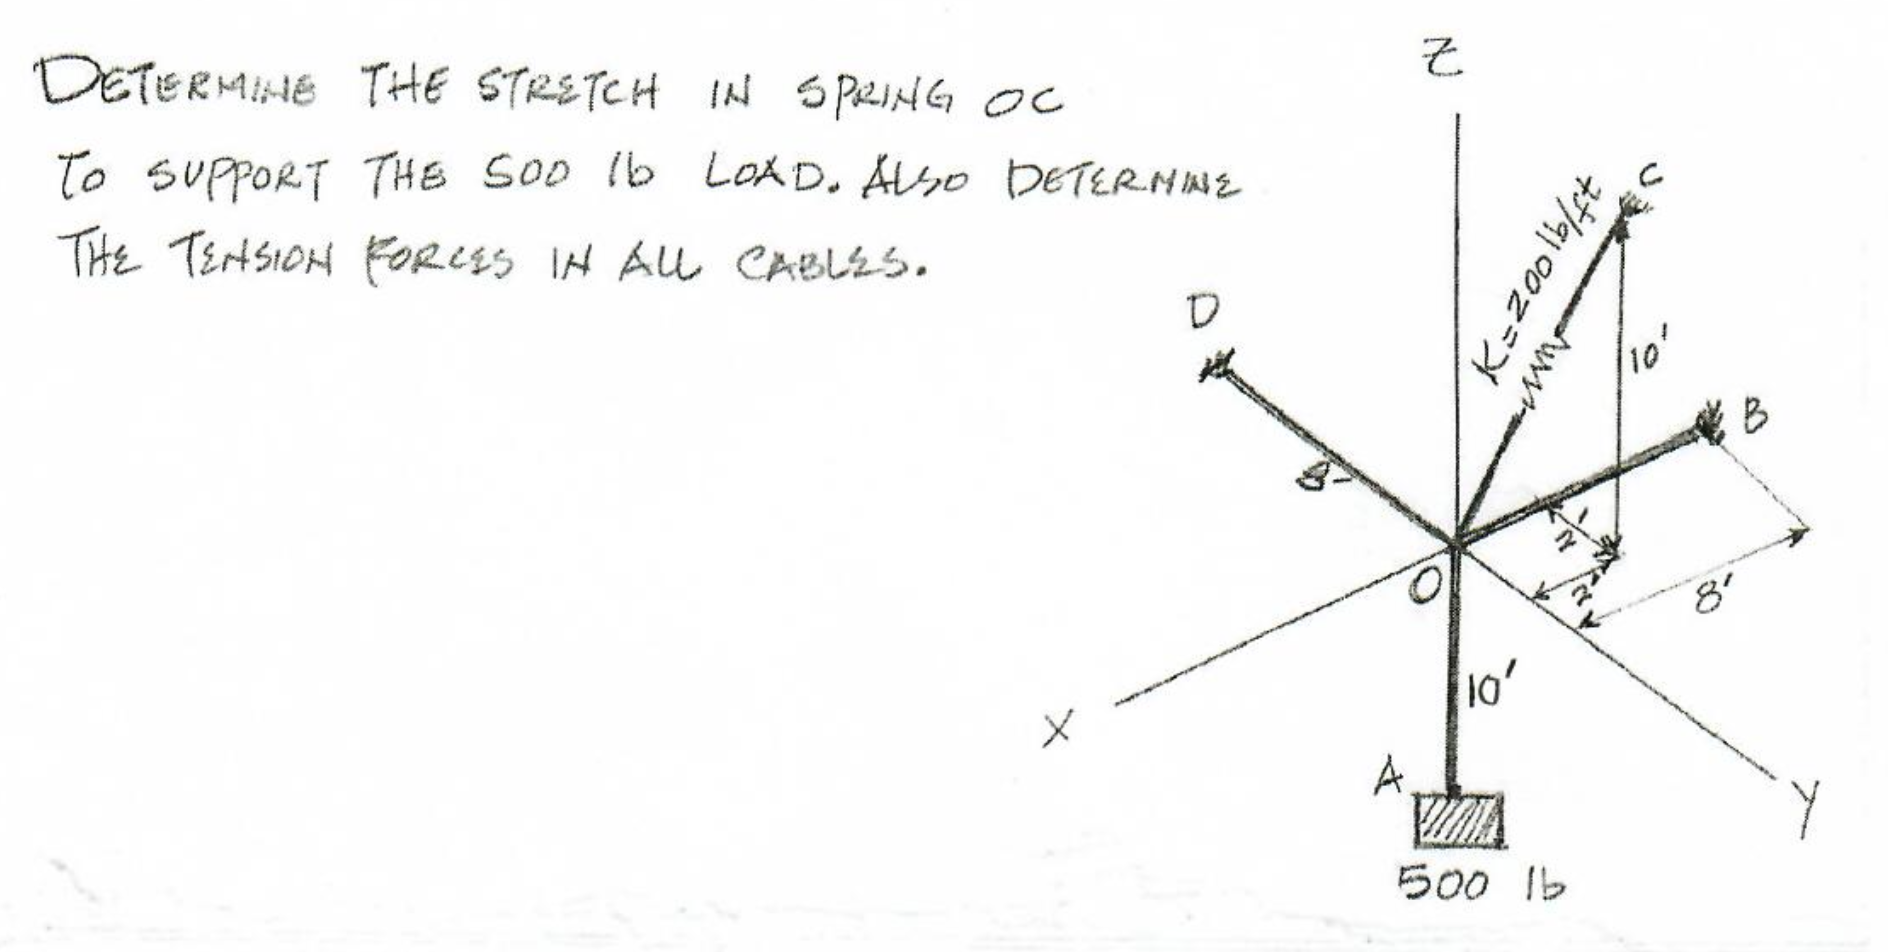 DETERMINE THE STRETCH IN SPRING OC
TO SUPPORT THE 500 lb LOAD. ALSO DETERMINE
THE TENSION FORCES IN ALL CABLES.
Z
C
K=200 lb/ft
D
10'
B
8'
2'
2'
8'
O
10'
X
A
Y
500 lb